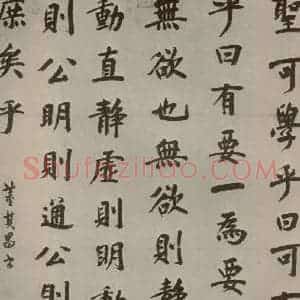 聖可學乎曰可有
乎曰有要一為要
無欲也無欲則静
動直静虚則明動
則公明則通公則
庶矣乎
董其昌書
Shufaziliao.com